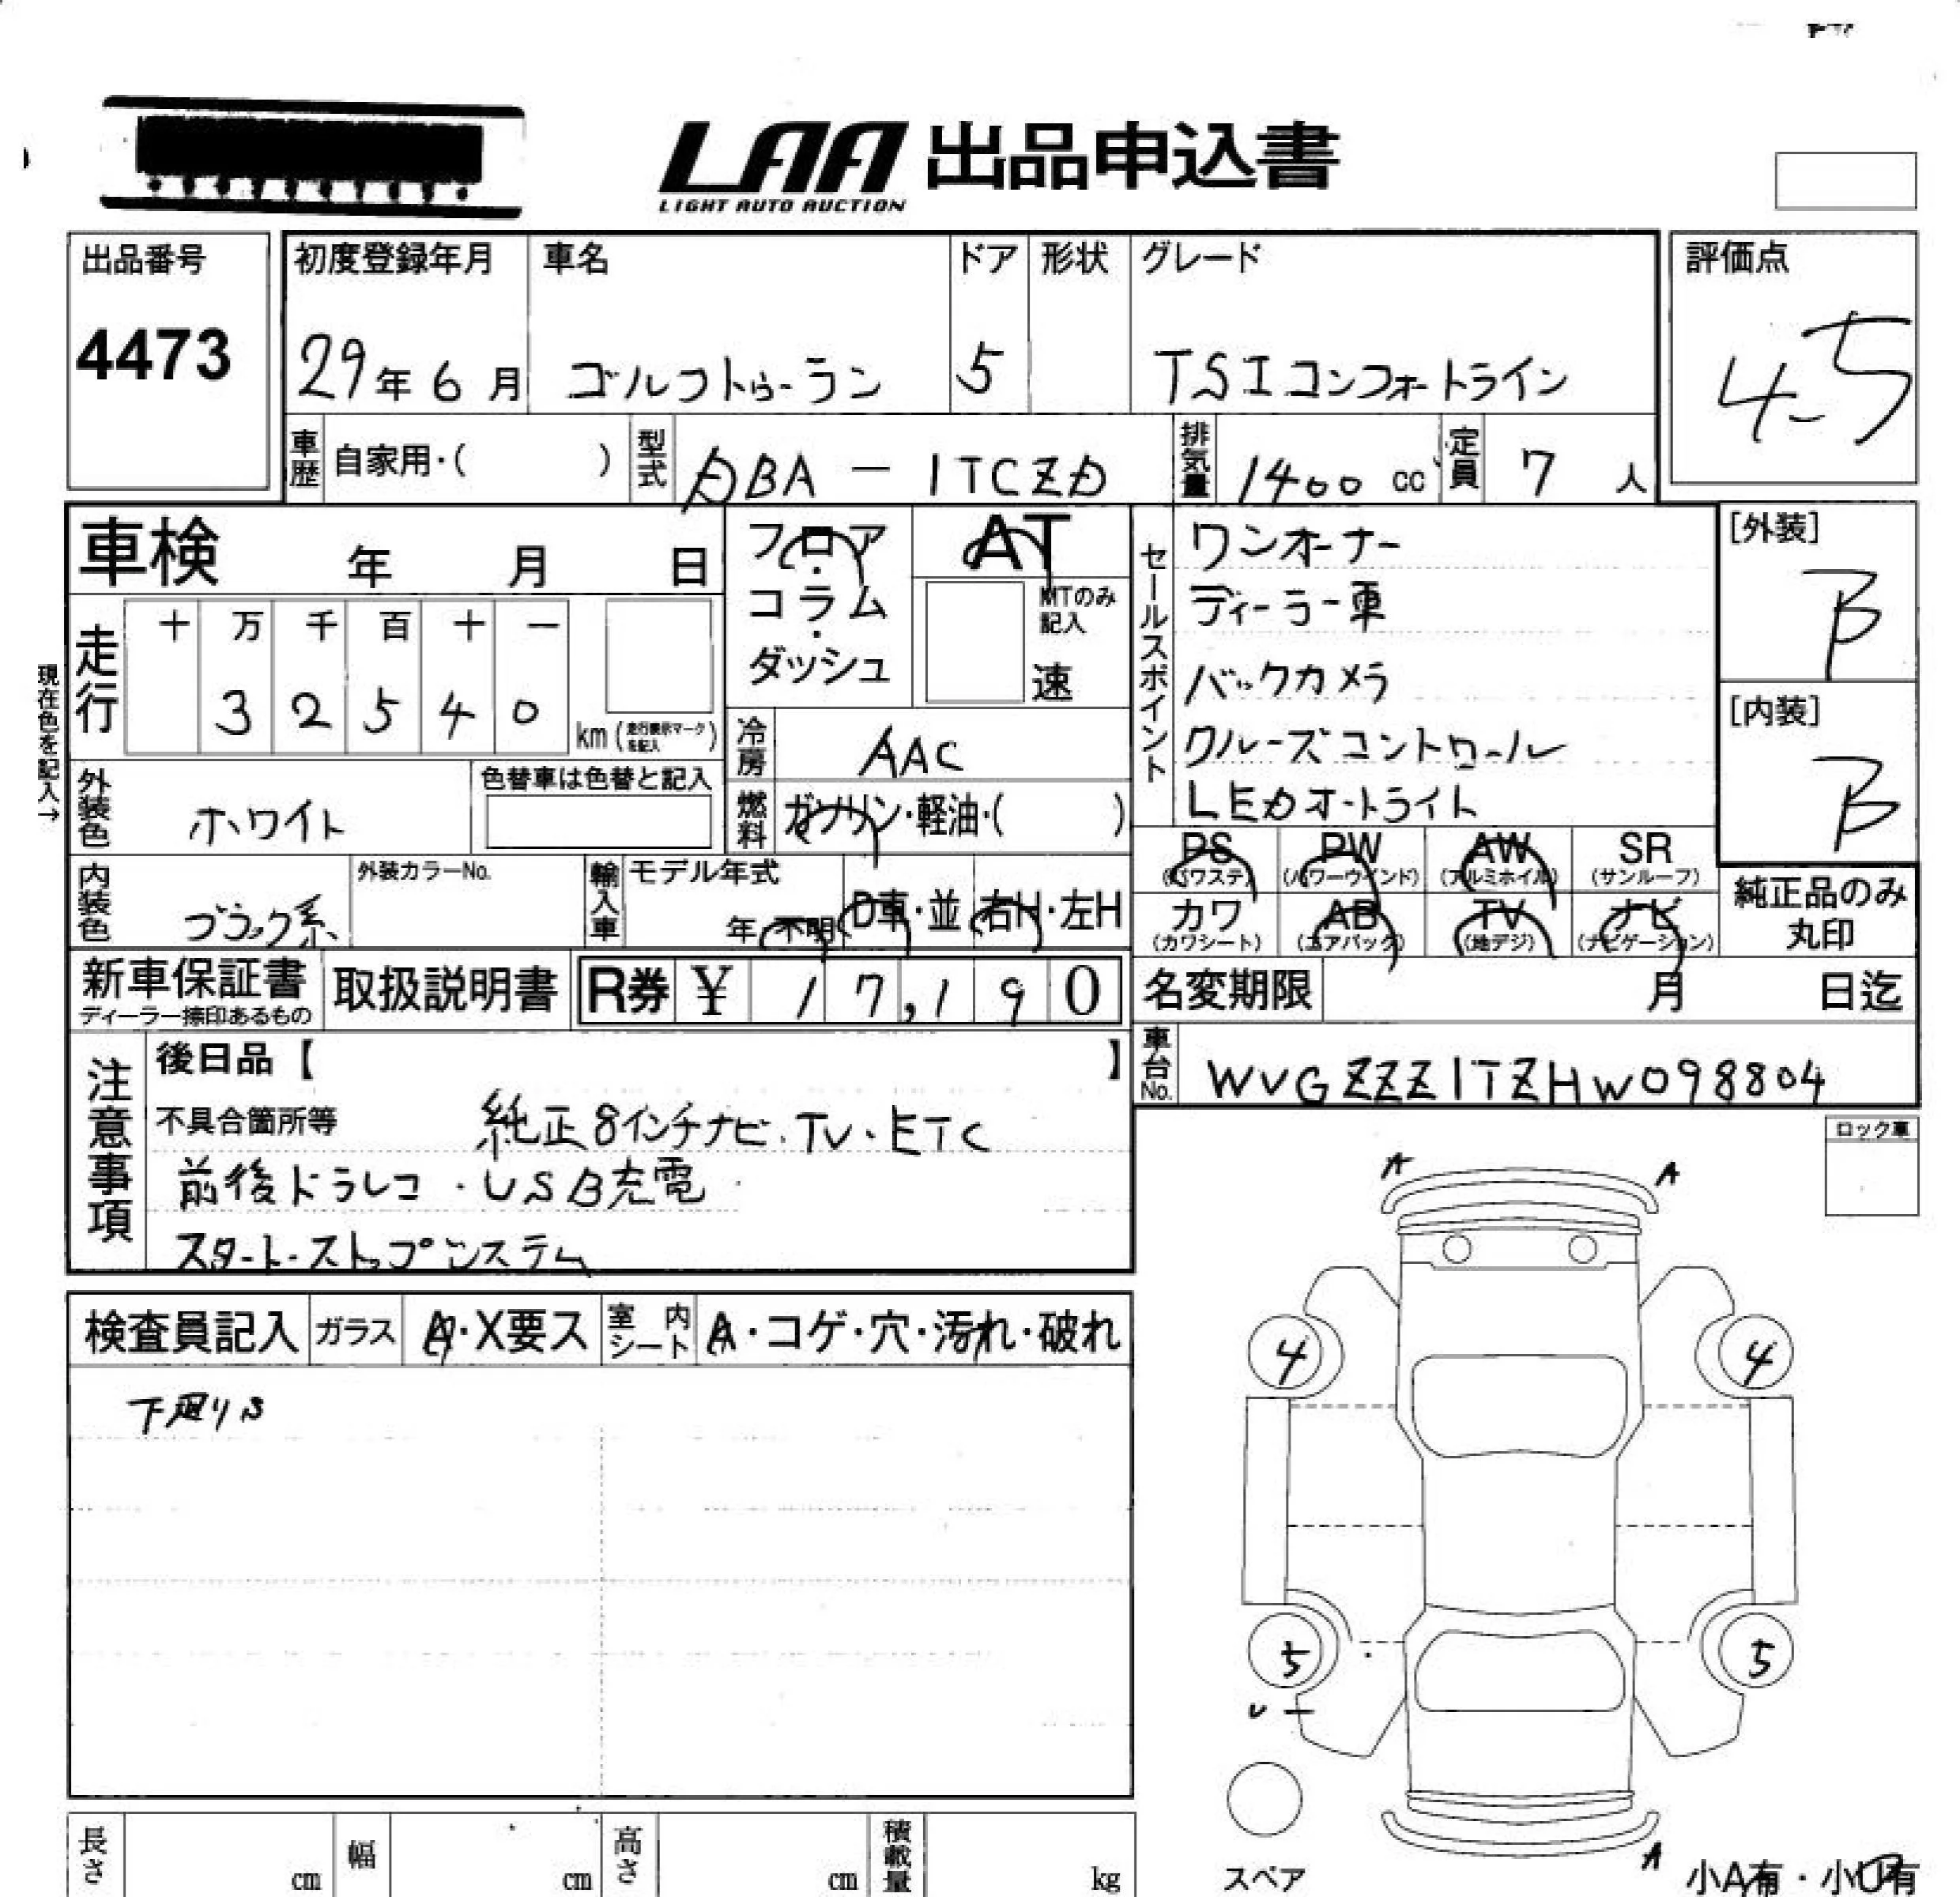 LAA 出品申込書
LIGHT AUTO AUCTION
出品番号
4473
初度登録年月
29年6月
車名
ゴルフトゥーラン
ドア
5
形状
グレード
TSIコンフォートライン
評価点
4.5
車歴
自家用・( )
型式
DBA-1TCZD
排気量
1400 cc
定員
7 人
車検 年 月 日
フロア・コラム・ダッシュ
AT
MTのみ記入
速
セールスポイント
ワンオーナー
ディーラー車
バックカメラ
クルーズコントロール
LEDオートライト
[外装]
B
[内装]
B
現在色を記入→
走行
十 万 千 百 十 一
3 2 5 4 0
km (走行表示マークを記入)
冷房
AAC
外装色
ホワイト
色替車は色替と記入
燃料
ガソリン・軽油・( )
PS PW AW SR
(パワステ) (パワーウインド) (アルミホイル) (サンルーフ)
カワ AB TV ナビ
(カワシート) (エアバック) (地デジ) (ナビゲーション)
純正品のみ
丸印
内装色
ブラック系
外装カラーNo.
輸入車
モデル年式
年・不明
D車・並
右H・左H
新車保証書
ディーラー捺印あるもの
取扱説明書
R券 ¥ 17,190
名変期限 月 日迄
車台No.
WVGZZZ1TZHW098804
注意事項
後日品【 】
不具合箇所等
純正8インチナビ・TV・ETC
前後ドラレコ・USB充電
スタート・ストップシステム
検査員記入
ガラス
A・X要ス
室内シート
A・コゲ・穴・汚れ・破れ
下廻りS
ロック車
A A
4 4
5 5
U
A
スペア
小A有・小U有
長さ cm
幅 cm
高さ cm
積載量 kg